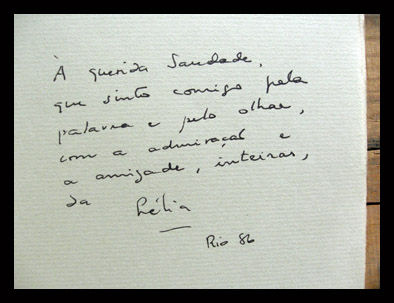 À querida Saudade,
que sinto comigo pela
palavra e pelo olhar,
com a admiração e
a amizade, inteiras,
da Lélia
Rio 86